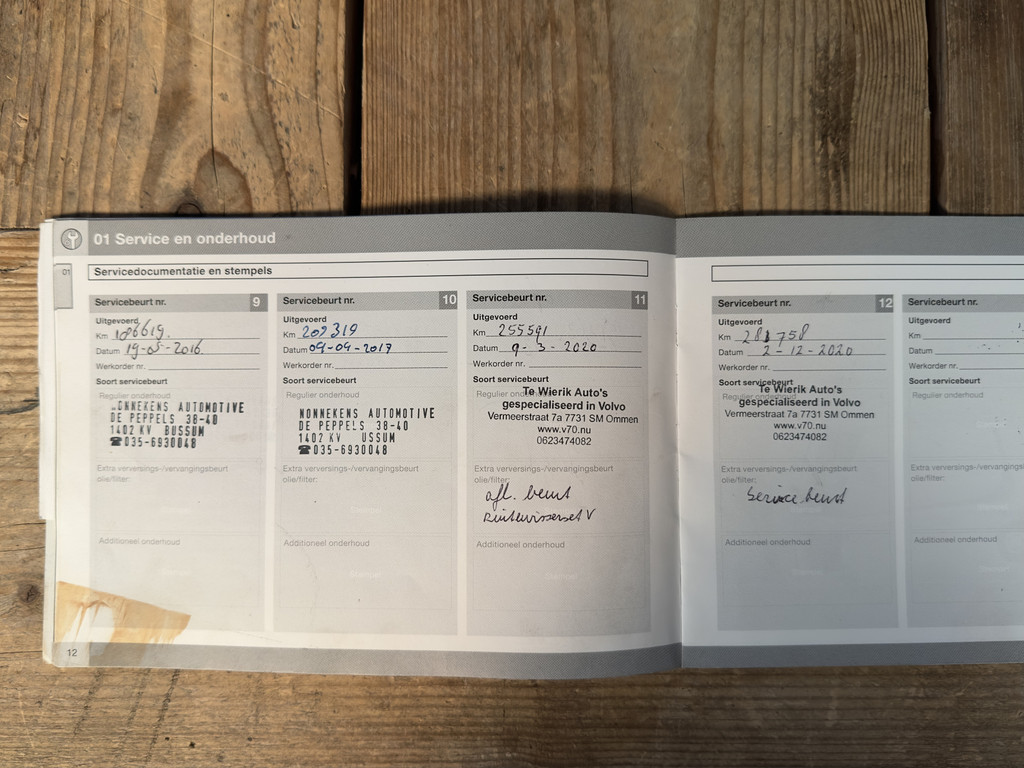 01 Service en onderhoud
01
Servicedocumentatie en stempels
Servicebeurt nr. 9
Uitgevoerd
Km 186619.
Datum 19-05-2016
Werkorder nr.
Soort servicebeurt
Regulier onderhoud
ONNEKENS AUTOMOTIVE
DE PEPPELS 38-40
1402 KV BUSSUM
☎035-6930048
Extra verversings-/vervangingsbeurt
olie/filter:
Additioneel onderhoud
12
Servicebeurt nr. 10
Uitgevoerd
Km 202319
Datum 09-04-2017
Werkorder nr.
Soort servicebeurt
Regulier onderhoud
NONNEKENS AUTOMOTIVE
DE PEPPELS 38-40
1402 KV USSUM
☎035-6930048
Extra verversings-/vervangingsbeurt
olie/filter:
Additioneel onderhoud
Servicebeurt nr. 11
Uitgevoerd
Km 255591
Datum 9-3-2020
Werkorder nr.
Soort servicebeurt
Regulier onderhoud
Te Wierik Auto's
gespecialiseerd in Volvo
Vermeerstraat 7a 7731 SM Ommen
www.v70.nu
0623474082
Extra verversings-/vervangingsbeurt
olie/filter:
afl. beurt
Ruitenwisserset V
Additioneel onderhoud
Servicebeurt nr. 12
Uitgevoerd
Km 281758
Datum 2-12-2020
Werkorder nr.
Soort servicebeurt
Regulier
Te Wierik Auto's
gespecialiseerd in Volvo
Vermeerstraat 7a 7731 SM Ommen
www.v70.nu
0623474082
Extra verversings-/vervangingsbeurt
olie/filter:
Service beurt
Additioneel onderhoud
Servicebeurt nr.
Uitgevoerd
Km
Datum
Werkorder nr.
Soort servicebeurt
Regulier onderhoud
Extra verversings-/ver
olie/filter:
Additioneel onderhoud